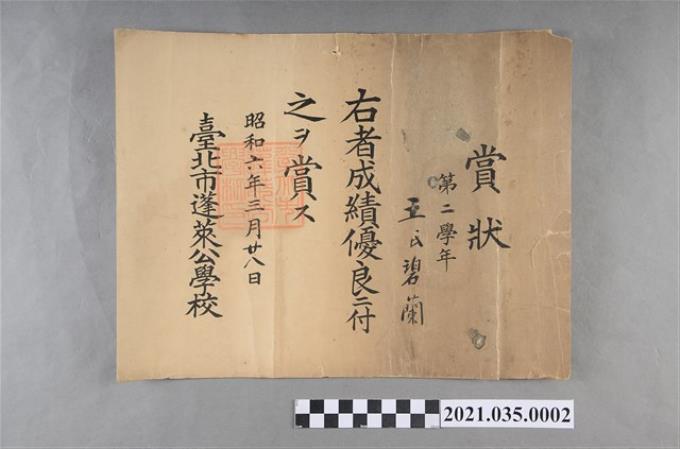 賞狀
第二學年
王氏碧蘭
右者成績優良ニ付
之ヲ賞ス
昭和六年三月廿八日
臺北市蓬萊公學校
2021.035.0002